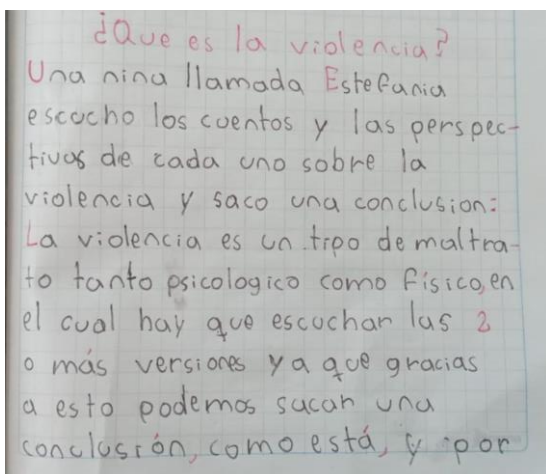 ¿Que es la violencia?
Una nina llamada Estefania
escucho los cuentos y las perspec-
tivas de cada uno sobre la
violencia y saco una conclusion:
La violencia es un tipo de maltra-
to tanto psicologico como físico, en
el cual hay que escuchar las 2
o más versiones ya que gracias
a esto podemos sacar una
conclusión, como está, y por